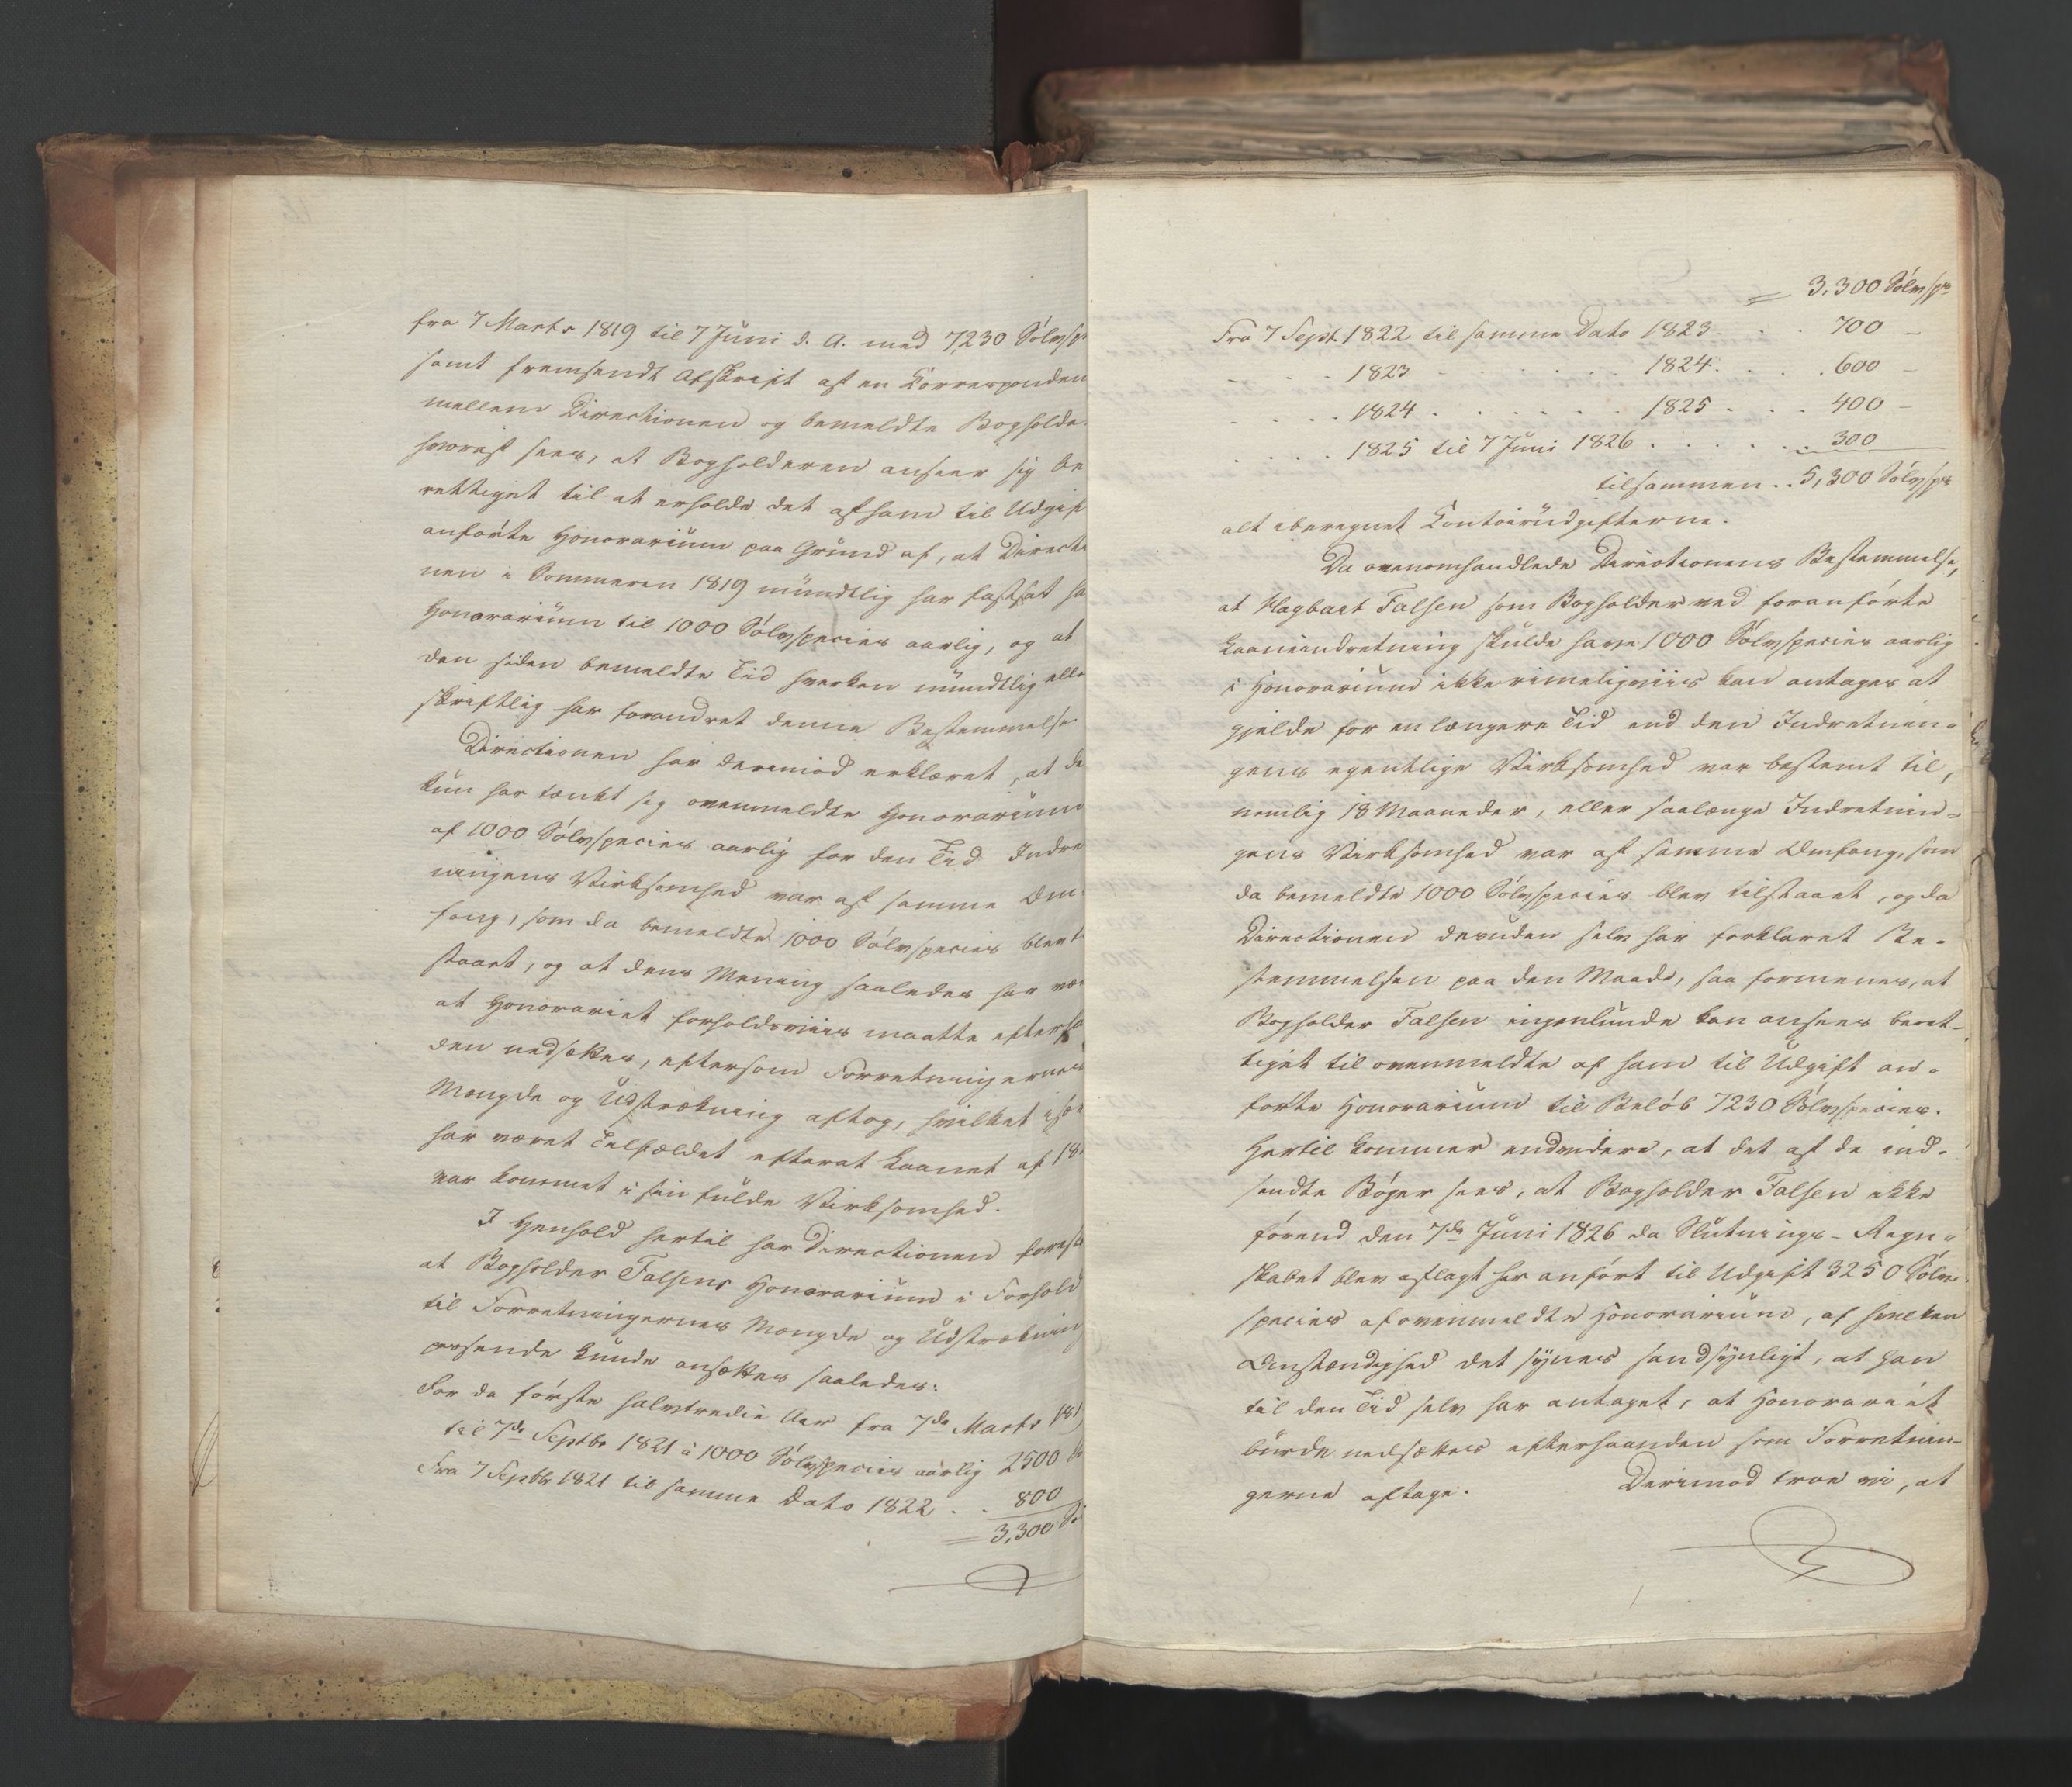 fra 7 Marts 1819 til 7 Juni d. A. med 7,230 Sølvsp
samt fremsendt Afskrift af en Corresponden
mellem Directionen og bemeldte Bogholde
hvoraf sees, at Bogholderen anseer sig be
rettiget til at erholde det af ham til Udgif
anførte Honorarium paa Grund af, at Directi
nen i Sommeren 1819 mundtlig har fastsat ha
Honorarium til 1000 Sølvspecies aarlig, og at
den siden bemeldte Tid hverken mundtlig elle
skriftlig har forandret denne Bestemmelse
Directionen har derimod erklæret, at de
kun har tænkt sig ovenmeldte Honorarium
af 1000 Sølvspecies aarlig for den Tid Indre
ningens Virksomhed var af samme Om
fang, som da bemeldte 1000 Sølvspecies blev t
staaet, og at dens Mening saaledes har væ
at Honorariet forholdsviis maatte efterha
den nedsættes, eftersom Forretningernes
Mængde og Udstrækning aftog, hvilket især
har været Tilfældet efterat Laanet af 18
var kommet i sin fulde Virksomhed.
I Henhold hertil har Directionen foresl
at Bogholder Falsens Honorarium i Forhold
til Forretningernes Mængde og Udstræknin
passende kunde ansættes saaledes:
For de første halvtredie Aar fra 7de Marts 181
til 7de Septbr 1821 à 1000 Sølvspecies aarlig 2500
Fra 7 Septbr 1821 til samme Dato 1822 . . 800
= 3,300 Sø
= 3,300 Sølvsps
Fra 7 Sept. 1822 til samme Dato 1823 . . . 700 –
. . . . 1823 . . . . . . 1824 . . . . 600 –
. . . . 1824 . . . . . . 1825 . . . . 400 –
. . . . 1825 til 7 Juni 1826 . . . . . . 300
tilsammen . . 5,300 Sølvsps
alt iberegnet Contoirudgifterne.
Da ovenomhandlede Directionens Bestemmelse,
at Hagbart Falsen som Bogholder ved foranførte
Laaneindretning skulde have 1000 Sølvspecies aarlig
i Honorarium ikke rimeligviis kan antages at
gjelde for en længere Tid end den Indretnin-
gens egentlige Virksomhed var bestemt til,
nemlig 18 Maaneder, eller saalænge Indretnin-
gens Virksomhed var af samme Omfang, som
da bemeldte 1000 Sølvspecies blev tilstaaet, og da
Directionen desuden selv har forklaret Be-
stemmelsen paa den Maade, saa formenes, at
Bogholder Falsen ingenlunde kan ansees beret-
tiget til ovenmeldte af ham til Udgift an-
førte Honorarium til Beløb 7230 Sølvspecies.
Hertil kommer endvidere, at det af de ind-
sendte Bøger sees, at Bogholder Falsen ikke
førend den 7de Juni 1826 da Slutnings-Regn-
skabet blev aflagt har anført til Udgift 3250 Sølv-
species af ovenmeldte Honorarium, af hvilken
Omstændighed det synes sandsynligt, at han
til den Tid selv har antaget, at Honorariet
burde nedsættes efterhaanden som Forretnin-
gerne aftage. Derimod troe vi, at